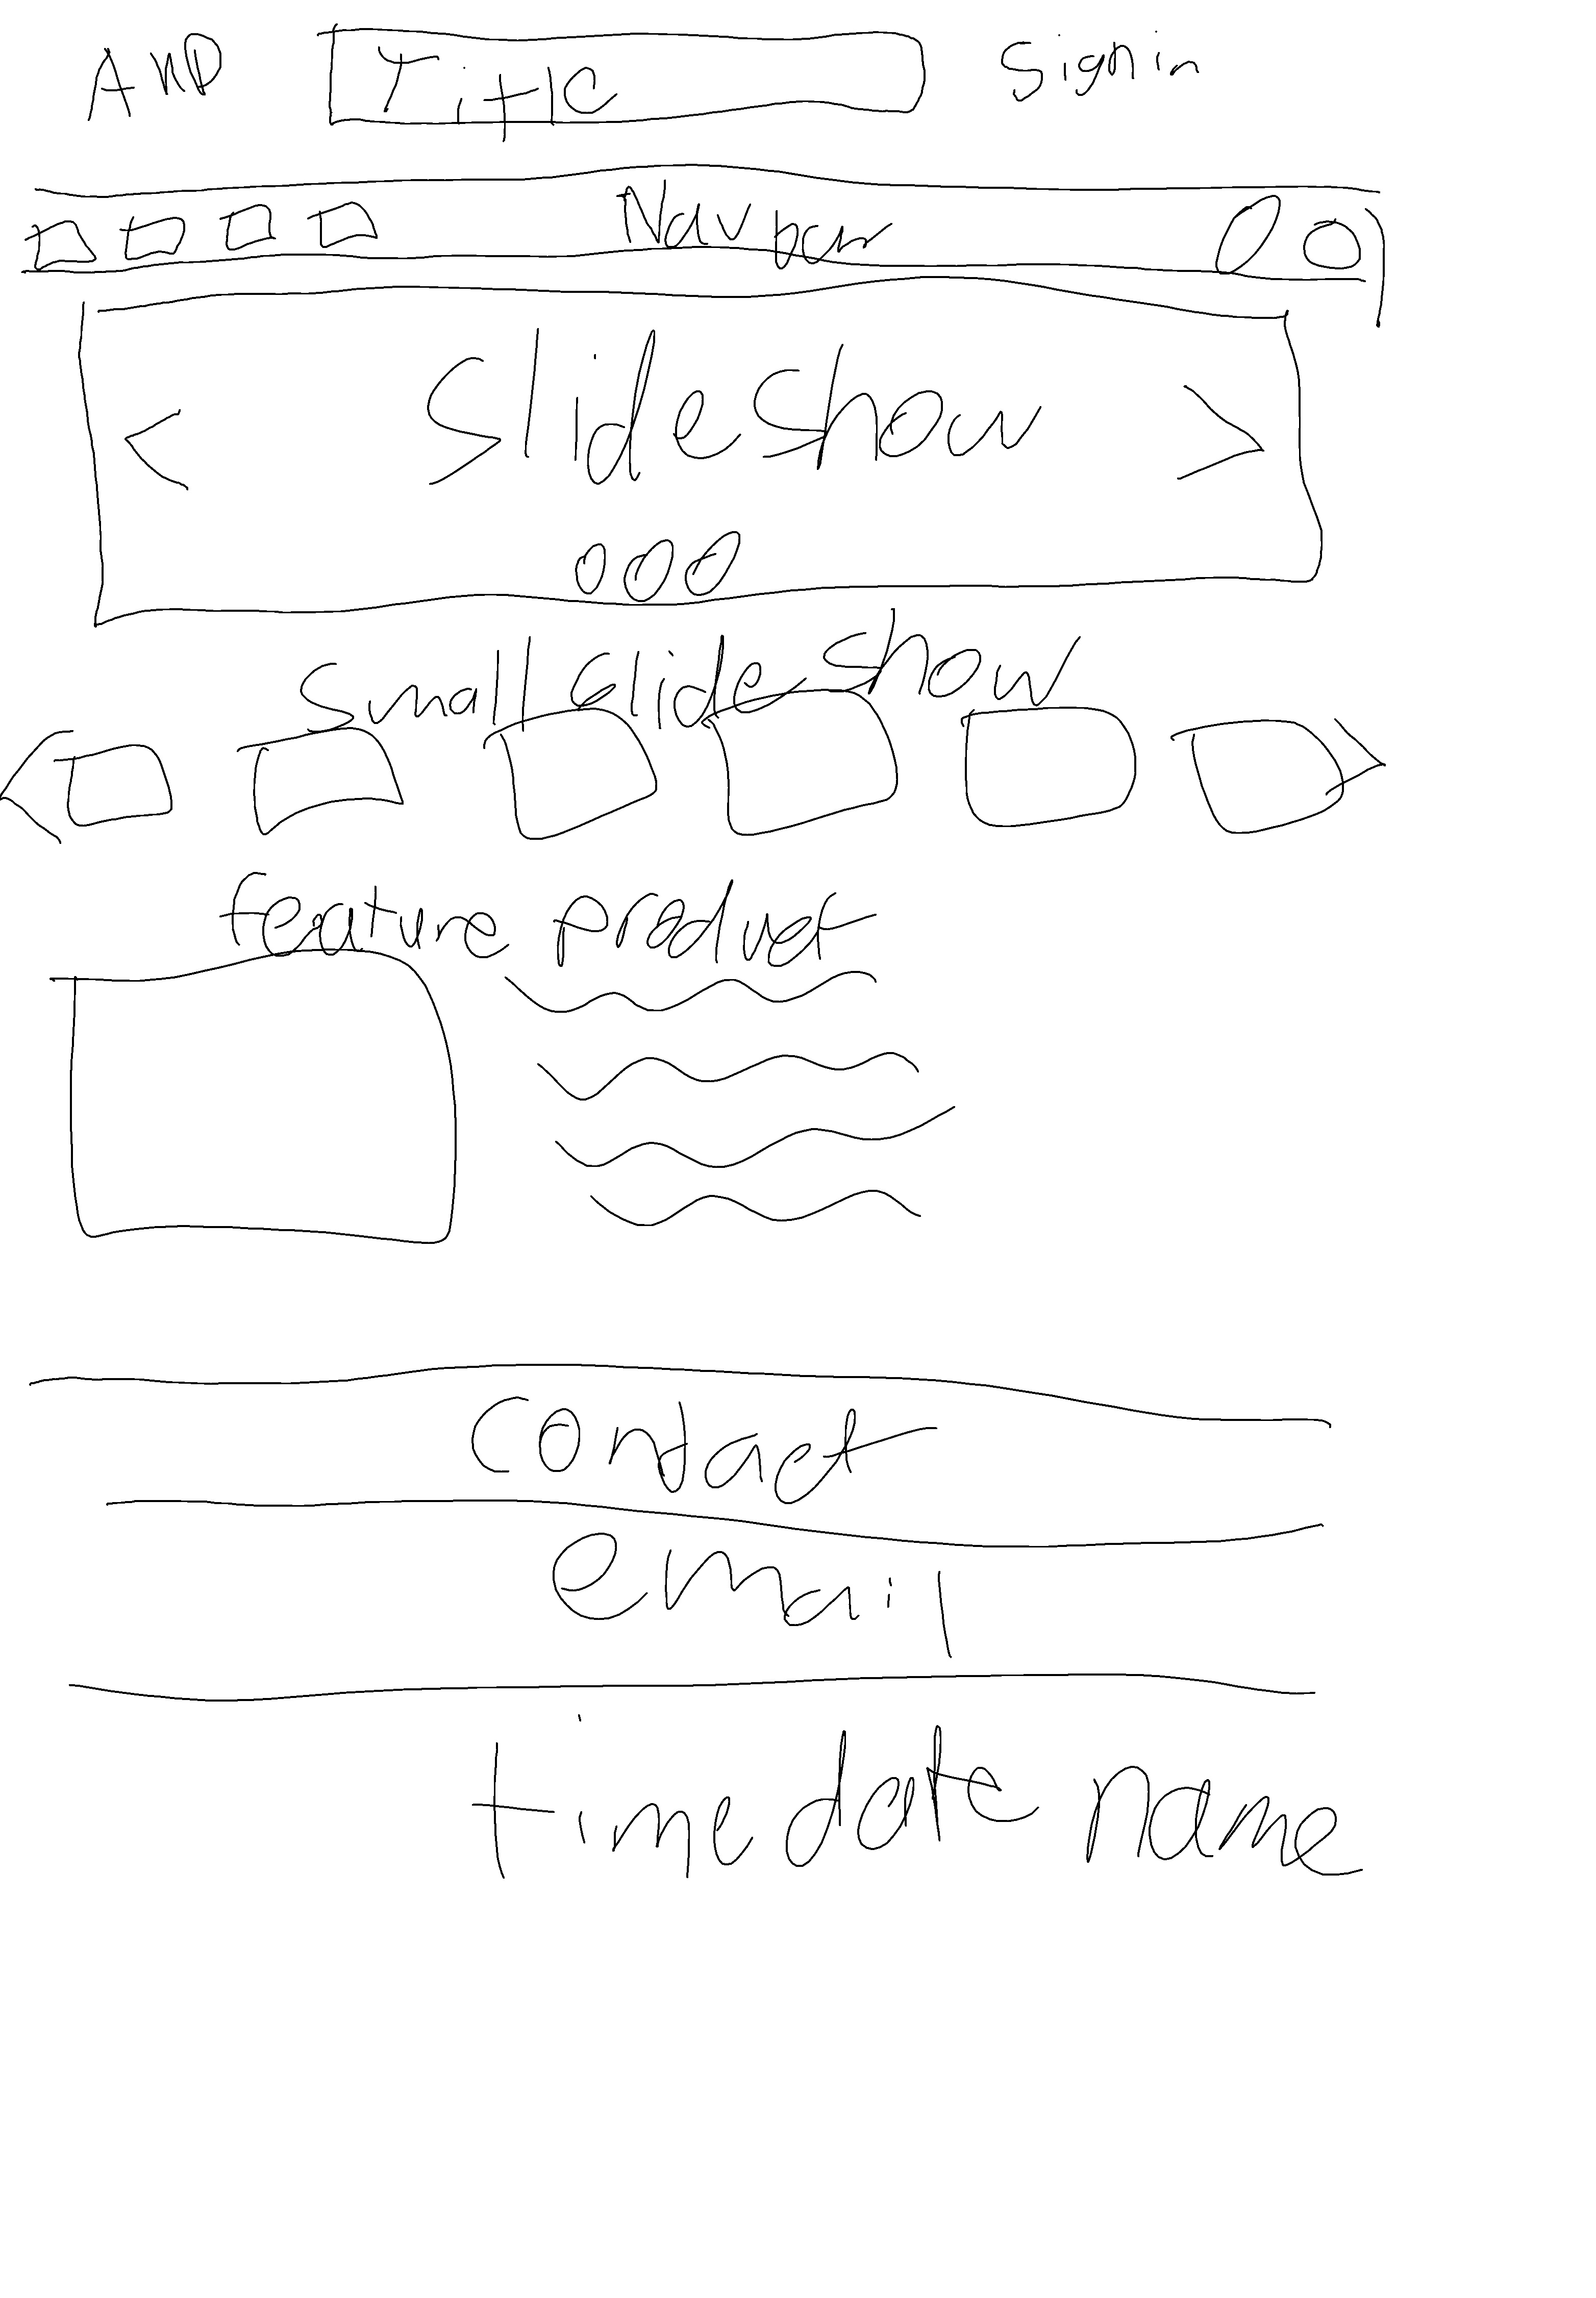 AND Title Sign in
Nav bar
< Slide show >
Small slide show
feature product
contact
email
time date name